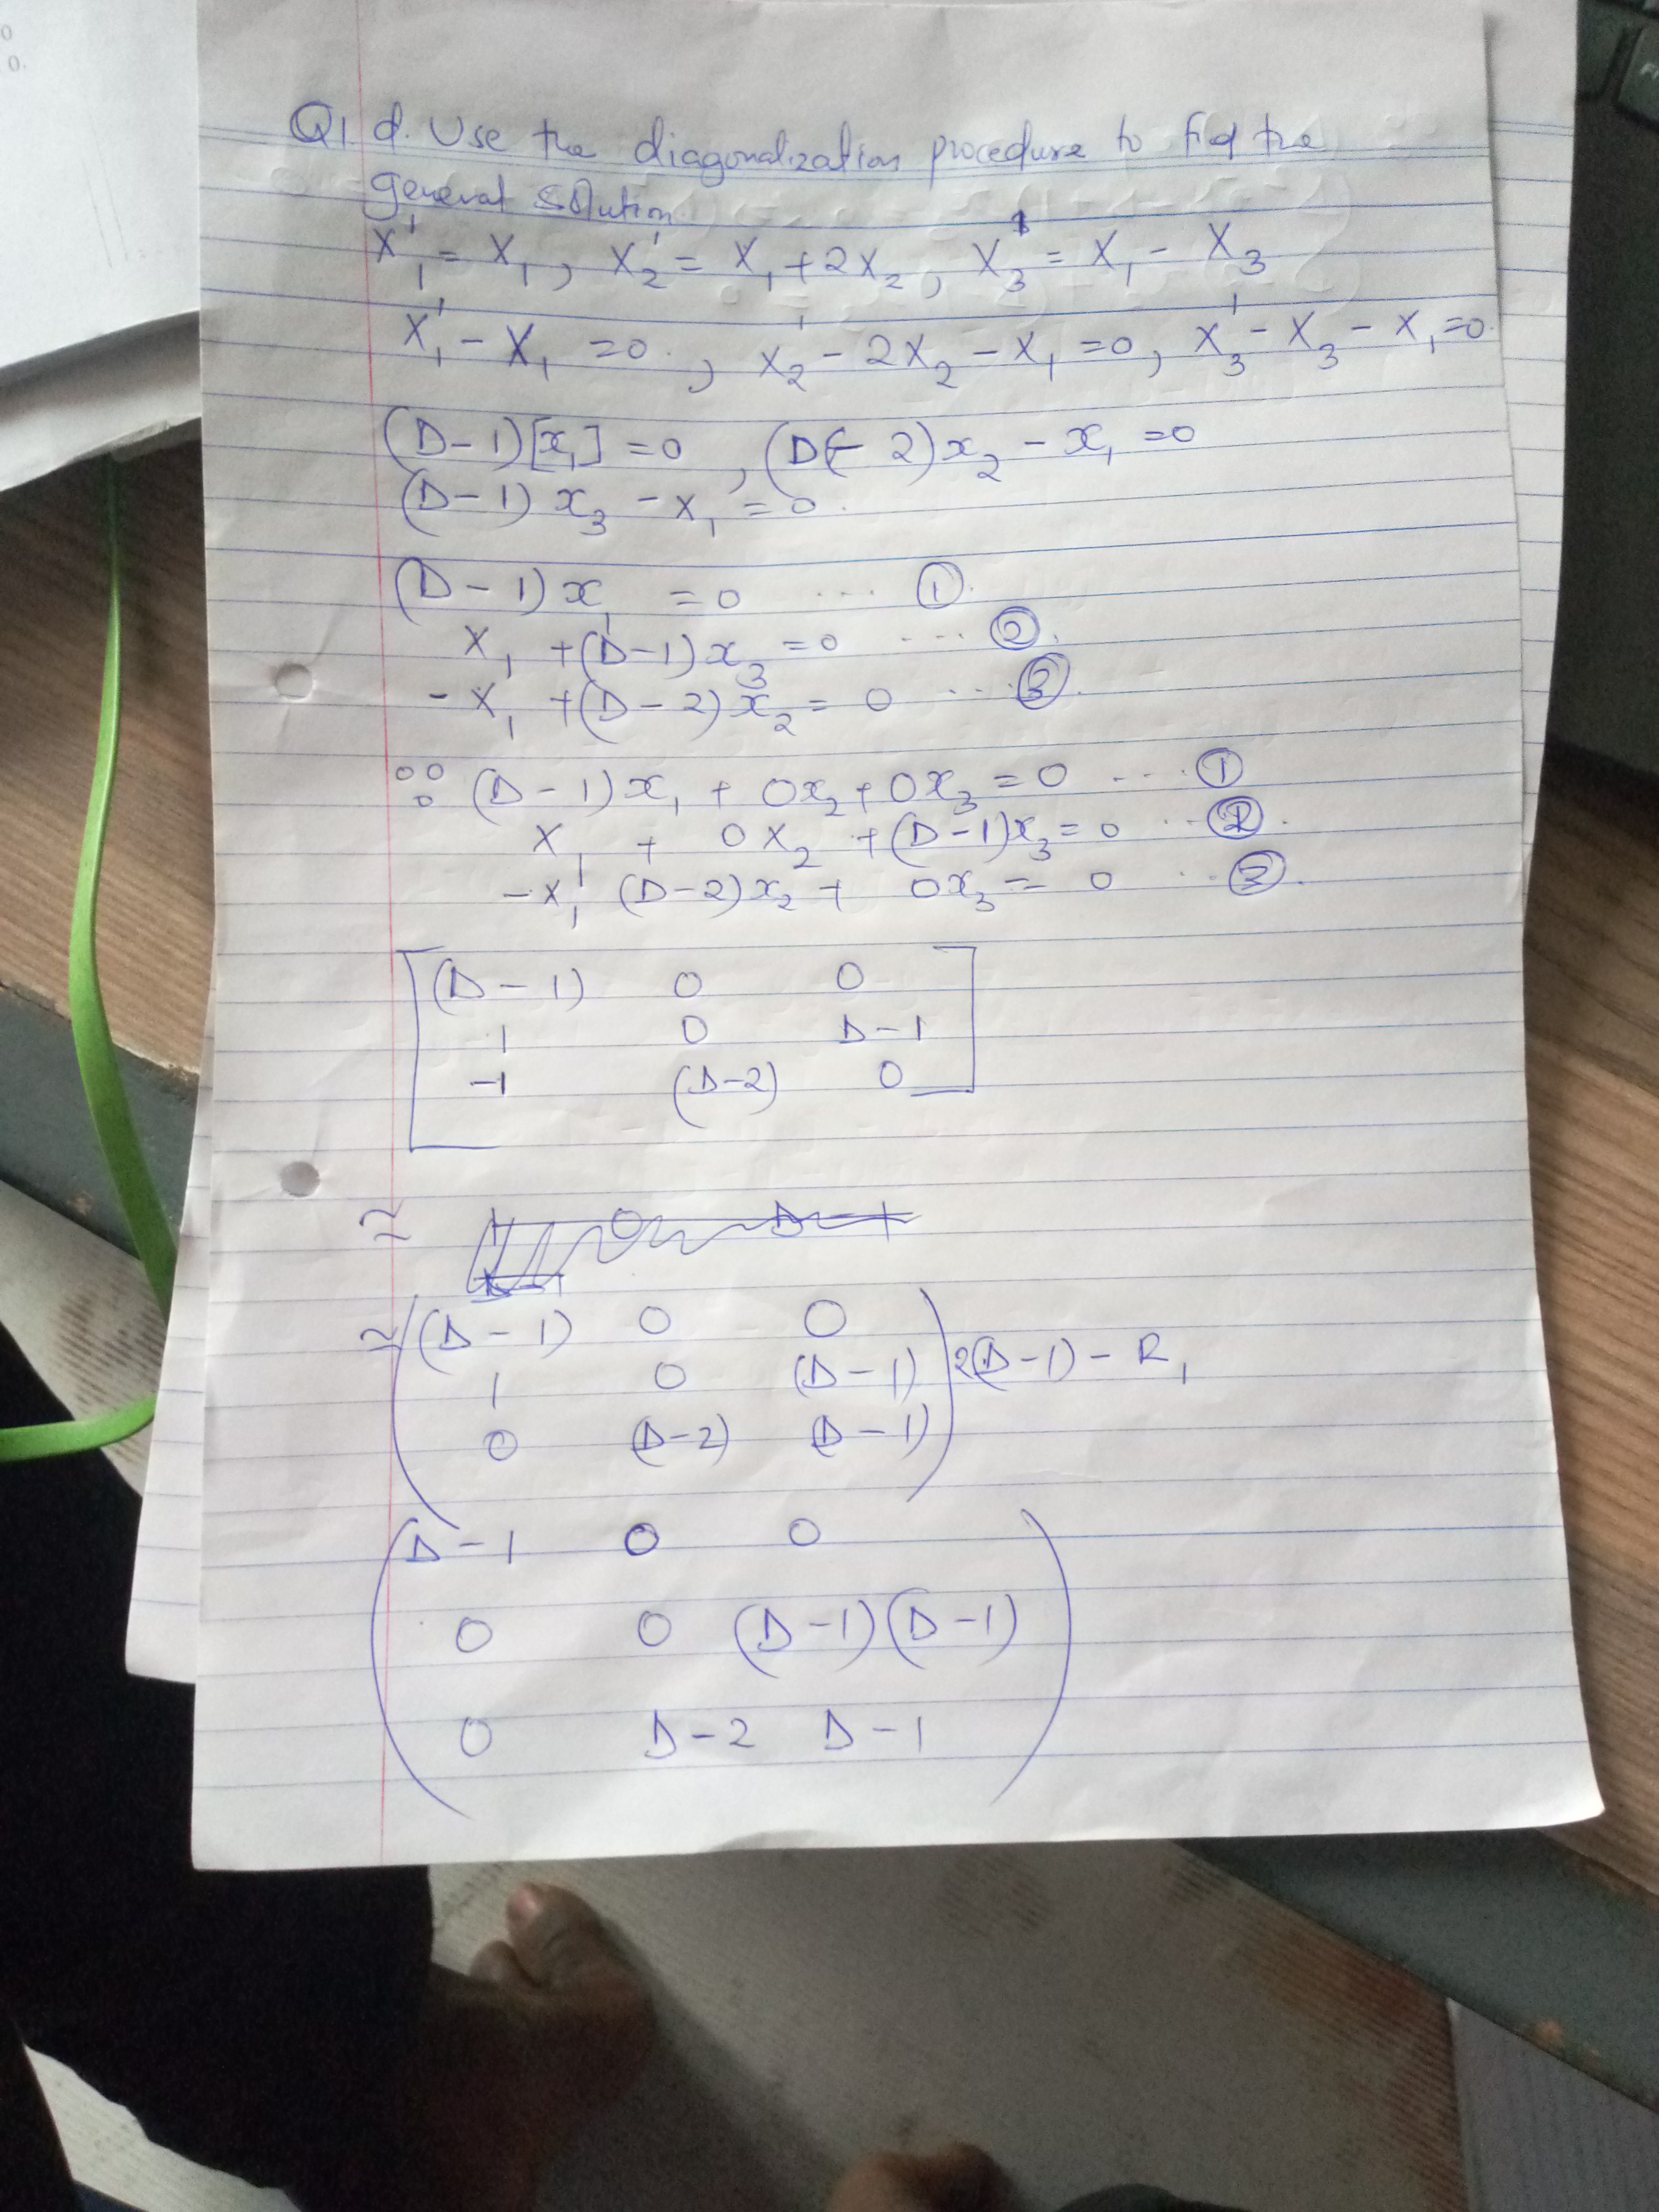 Q1. d. Use the diagonalization procedure to find the
general solution.
X₁' = X₁, X₂' = X₁ + 2X₂, X₃' = X₁ - X₃
X₁' - X₁ = 0, X₂' - 2X₂ - X₁ = 0, X₃' - X₃ - X₁ = 0.
(D-1)[x₁] = 0, (D - 2)x₂ - x₁ = 0
(D-1) x₃ - x₁ = 0.
(D-1) x₁ = 0 ... ①.
X₁ + (D-1)x₃ = 0 ... ②.
- X₁ + (D-2)x₂ = 0 ... ③.
∵ (D-1)x₁ + 0x₂ + 0x₃ = 0 ... ①
X₁ + 0X₂ + (D-1)x₃ = 0 ... ②.
-X₁ + (D-2)x₂ + 0x₃ = 0 ... ③.
(D-1) 0 0
1 0 D-1
-1 (D-2) 0
≃
≃ (D-1) 0 0
1 0 (D-1) 2(D-1) - R₁
0 (D-2) (D-1)
D-1 0 0
0 0 (D-1)(D-1)
0 D-2 D-1